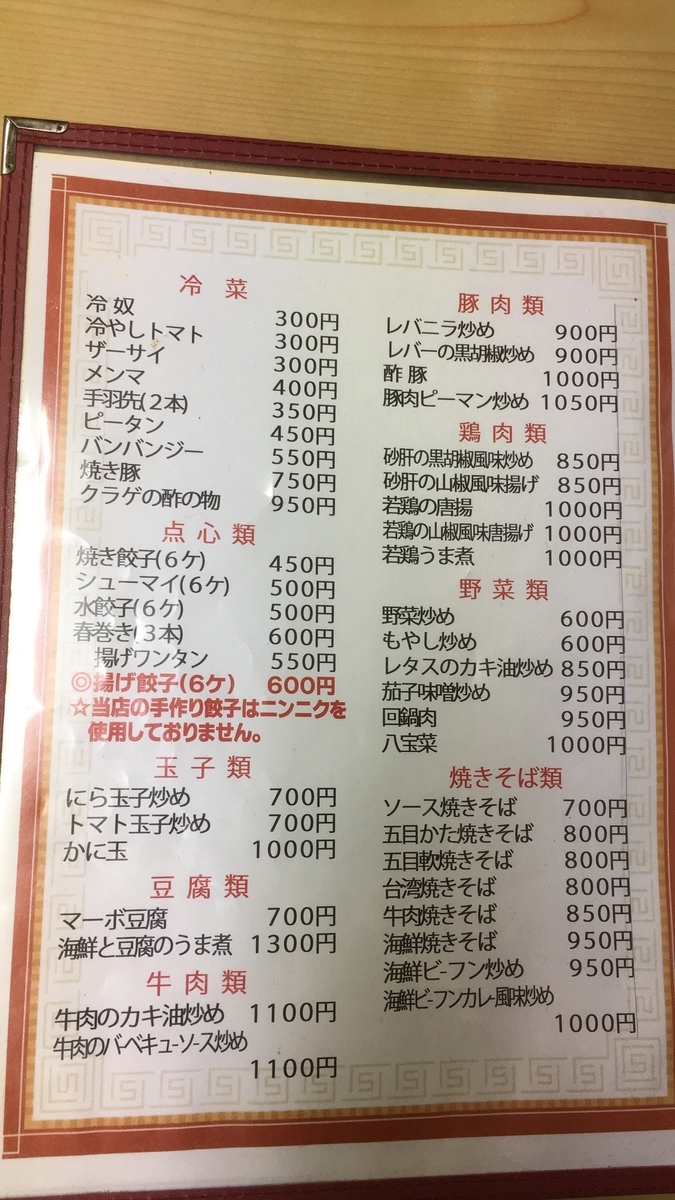 冷菜
冷奴 300円
冷やしトマト 300円
ザーサイ 300円
メンマ 400円
手羽先(2本) 350円
ピータン 450円
バンバンジー 550円
焼き豚 750円
クラゲの酢の物 950円
点心類
焼き餃子(6ケ) 450円
シューマイ(6ケ) 500円
水餃子(6ケ) 500円
春巻き(3本) 600円
揚げワンタン 550円
◎揚げ餃子(6ケ) 600円
☆当店の手作り餃子はニンニクを
使用しておりません。
玉子類
にら玉子炒め 700円
トマト玉子炒め 700円
かに玉 1000円
豆腐類
マーボ豆腐 700円
海鮮と豆腐のうま煮 1300円
牛肉類
牛肉のカキ油炒め 1100円
牛肉のバベキューソース炒め
1100円
豚肉類
レバニラ炒め 900円
レバーの黒胡椒炒め 900円
酢豚 1000円
豚肉ピーマン炒め 1050円
鶏肉類
砂肝の黒胡椒風味炒め 850円
砂肝の山椒風味揚げ 850円
若鶏の唐揚 1000円
若鶏の山椒風味唐揚げ 1000円
若鶏うま煮 1000円
野菜類
野菜炒め 600円
もやし炒め 600円
レタスのカキ油炒め 850円
茄子味噌炒め 950円
回鍋肉 950円
八宝菜 1000円
焼きそば類
ソース焼きそば 700円
五目かた焼きそば 800円
五目軟焼きそば 800円
台湾焼きそば 800円
牛肉焼きそば 850円
海鮮焼きそば 950円
海鮮ビーフン炒め 950円
海鮮ビーフンカレー風味炒め
1000円